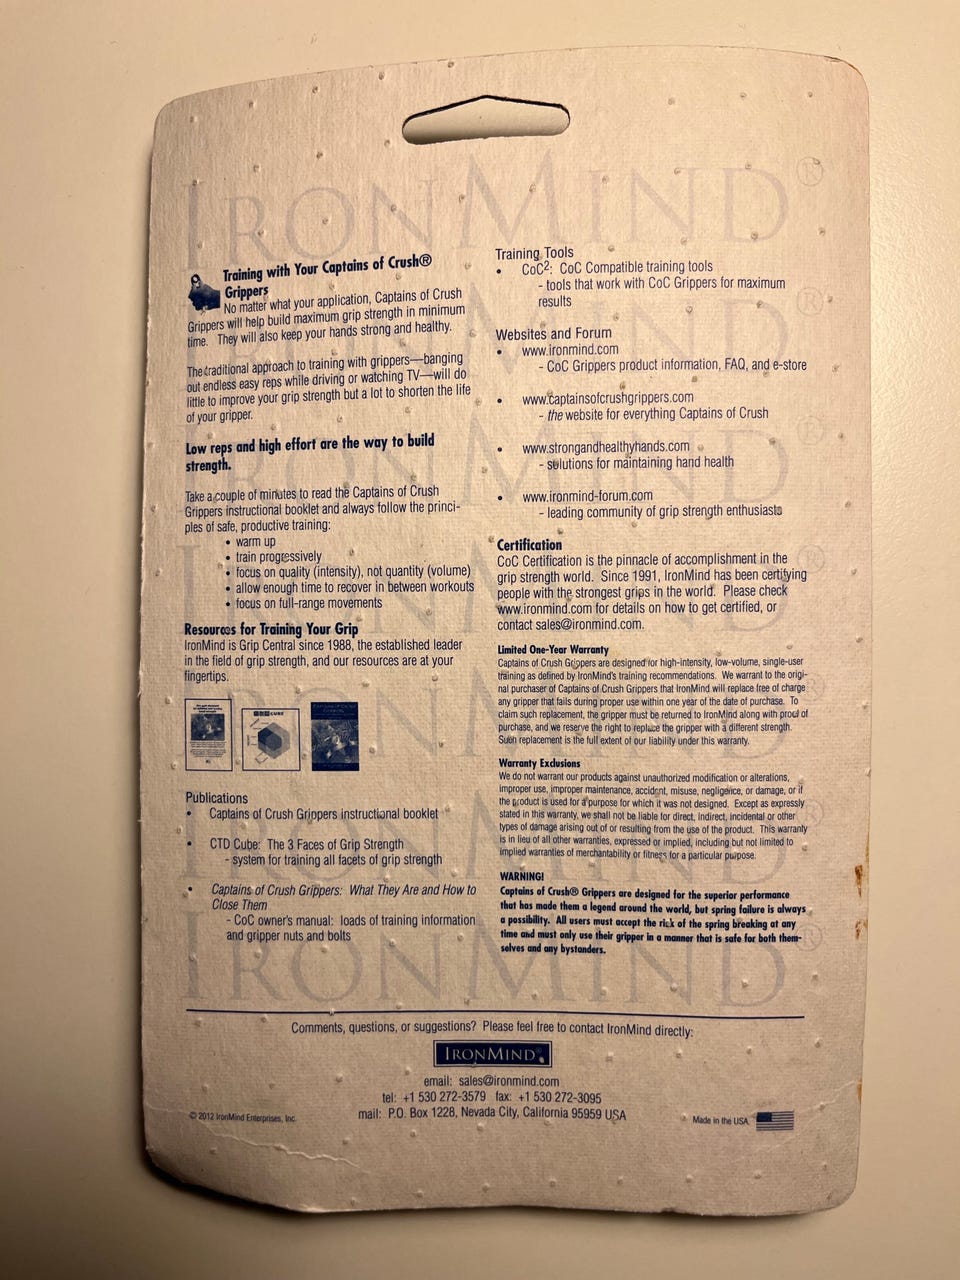 IRONMIND®
Training with Your Captains of Crush®
Grippers
No matter what your application, Captains of Crush
Grippers will help build maximum grip strength in minimum
time. They will also keep your hands strong and healthy.
The traditional approach to training with grippers—banging
out endless easy reps while driving or watching TV—will do
little to improve your grip strength but a lot to shorten the life
of your gripper.
Low reps and high effort are the way to build
strength.
Take a couple of minutes to read the Captains of Crush
Grippers instructional booklet and always follow the princi-
ples of safe, productive training:
• warm up
• train progressively
• focus on quality (intensity), not quantity (volume)
• allow enough time to recover in between workouts
• focus on full-range movements
Resources for Training Your Grip
IronMind is Grip Central since 1988, the established leader
in the field of grip strength, and our resources are at your
fingertips.
CUBE
Publications
• Captains of Crush Grippers instructional booklet
• CTD Cube: The 3 Faces of Grip Strength
- system for training all facets of grip strength
• Captains of Crush Grippers: What They Are and How to
Close Them
- CoC owner's manual: loads of training information
and gripper nuts and bolts
Training Tools
• CoC²: CoC Compatible training tools
- tools that work with CoC Grippers for maximum
results
Websites and Forum
• www.ironmind.com
- CoC Grippers product information, FAQ, and e-store
• www.captainsofcrushgrippers.com
- the website for everything Captains of Crush
• www.strongandhealthyhands.com
- solutions for maintaining hand health
• www.ironmind-forum.com
- leading community of grip strength enthusiasts
Certification
CoC Certification is the pinnacle of accomplishment in the
grip strength world. Since 1991, IronMind has been certifying
people with the strongest grips in the world. Please check
www.ironmind.com for details on how to get certified, or
contact sales@ironmind.com.
Limited One-Year Warranty
Captains of Crush Grippers are designed for high-intensity, low-volume, single-user
training as defined by IronMind's training recommendations. We warrant to the origi-
nal purchaser of Captains of Crush Grippers that IronMind will replace free of charge
any gripper that fails during proper use within one year of the date of purchase. To
claim such replacement, the gripper must be returned to IronMind along with proof of
purchase, and we reserve the right to replace the gripper with a different strength.
Such replacement is the full extent of our liability under this warranty.
Warranty Exclusions
We do not warrant our products against unauthorized modification or alterations,
improper use, improper maintenance, accident, misuse, negligence, or damage, or if
the product is used for a purpose for which it was not designed. Except as expressly
stated in this warranty, we shall not be liable for direct, indirect, incidental or other
types of damage arising out of or resulting from the use of the product. This warranty
is in lieu of all other warranties, expressed or implied, including but not limited to
implied warranties of merchantability or fitness for a particular purpose.
WARNING!
Captains of Crush® Grippers are designed for the superior performance
that has made them a legend around the world, but spring failure is always
a possibility. All users must accept the risk of the spring breaking at any
time and must only use their gripper in a manner that is safe for both them-
selves and any bystanders.
IRONMIND®
Comments, questions, or suggestions? Please feel free to contact IronMind directly:
IRONMIND®
email: sales@ironmind.com
tel: +1 530 272-3579 fax: +1 530 272-3095
mail: P.O. Box 1228, Nevada City, California 95959 USA
© 2012 IronMind Enterprises, Inc.
Made in the USA